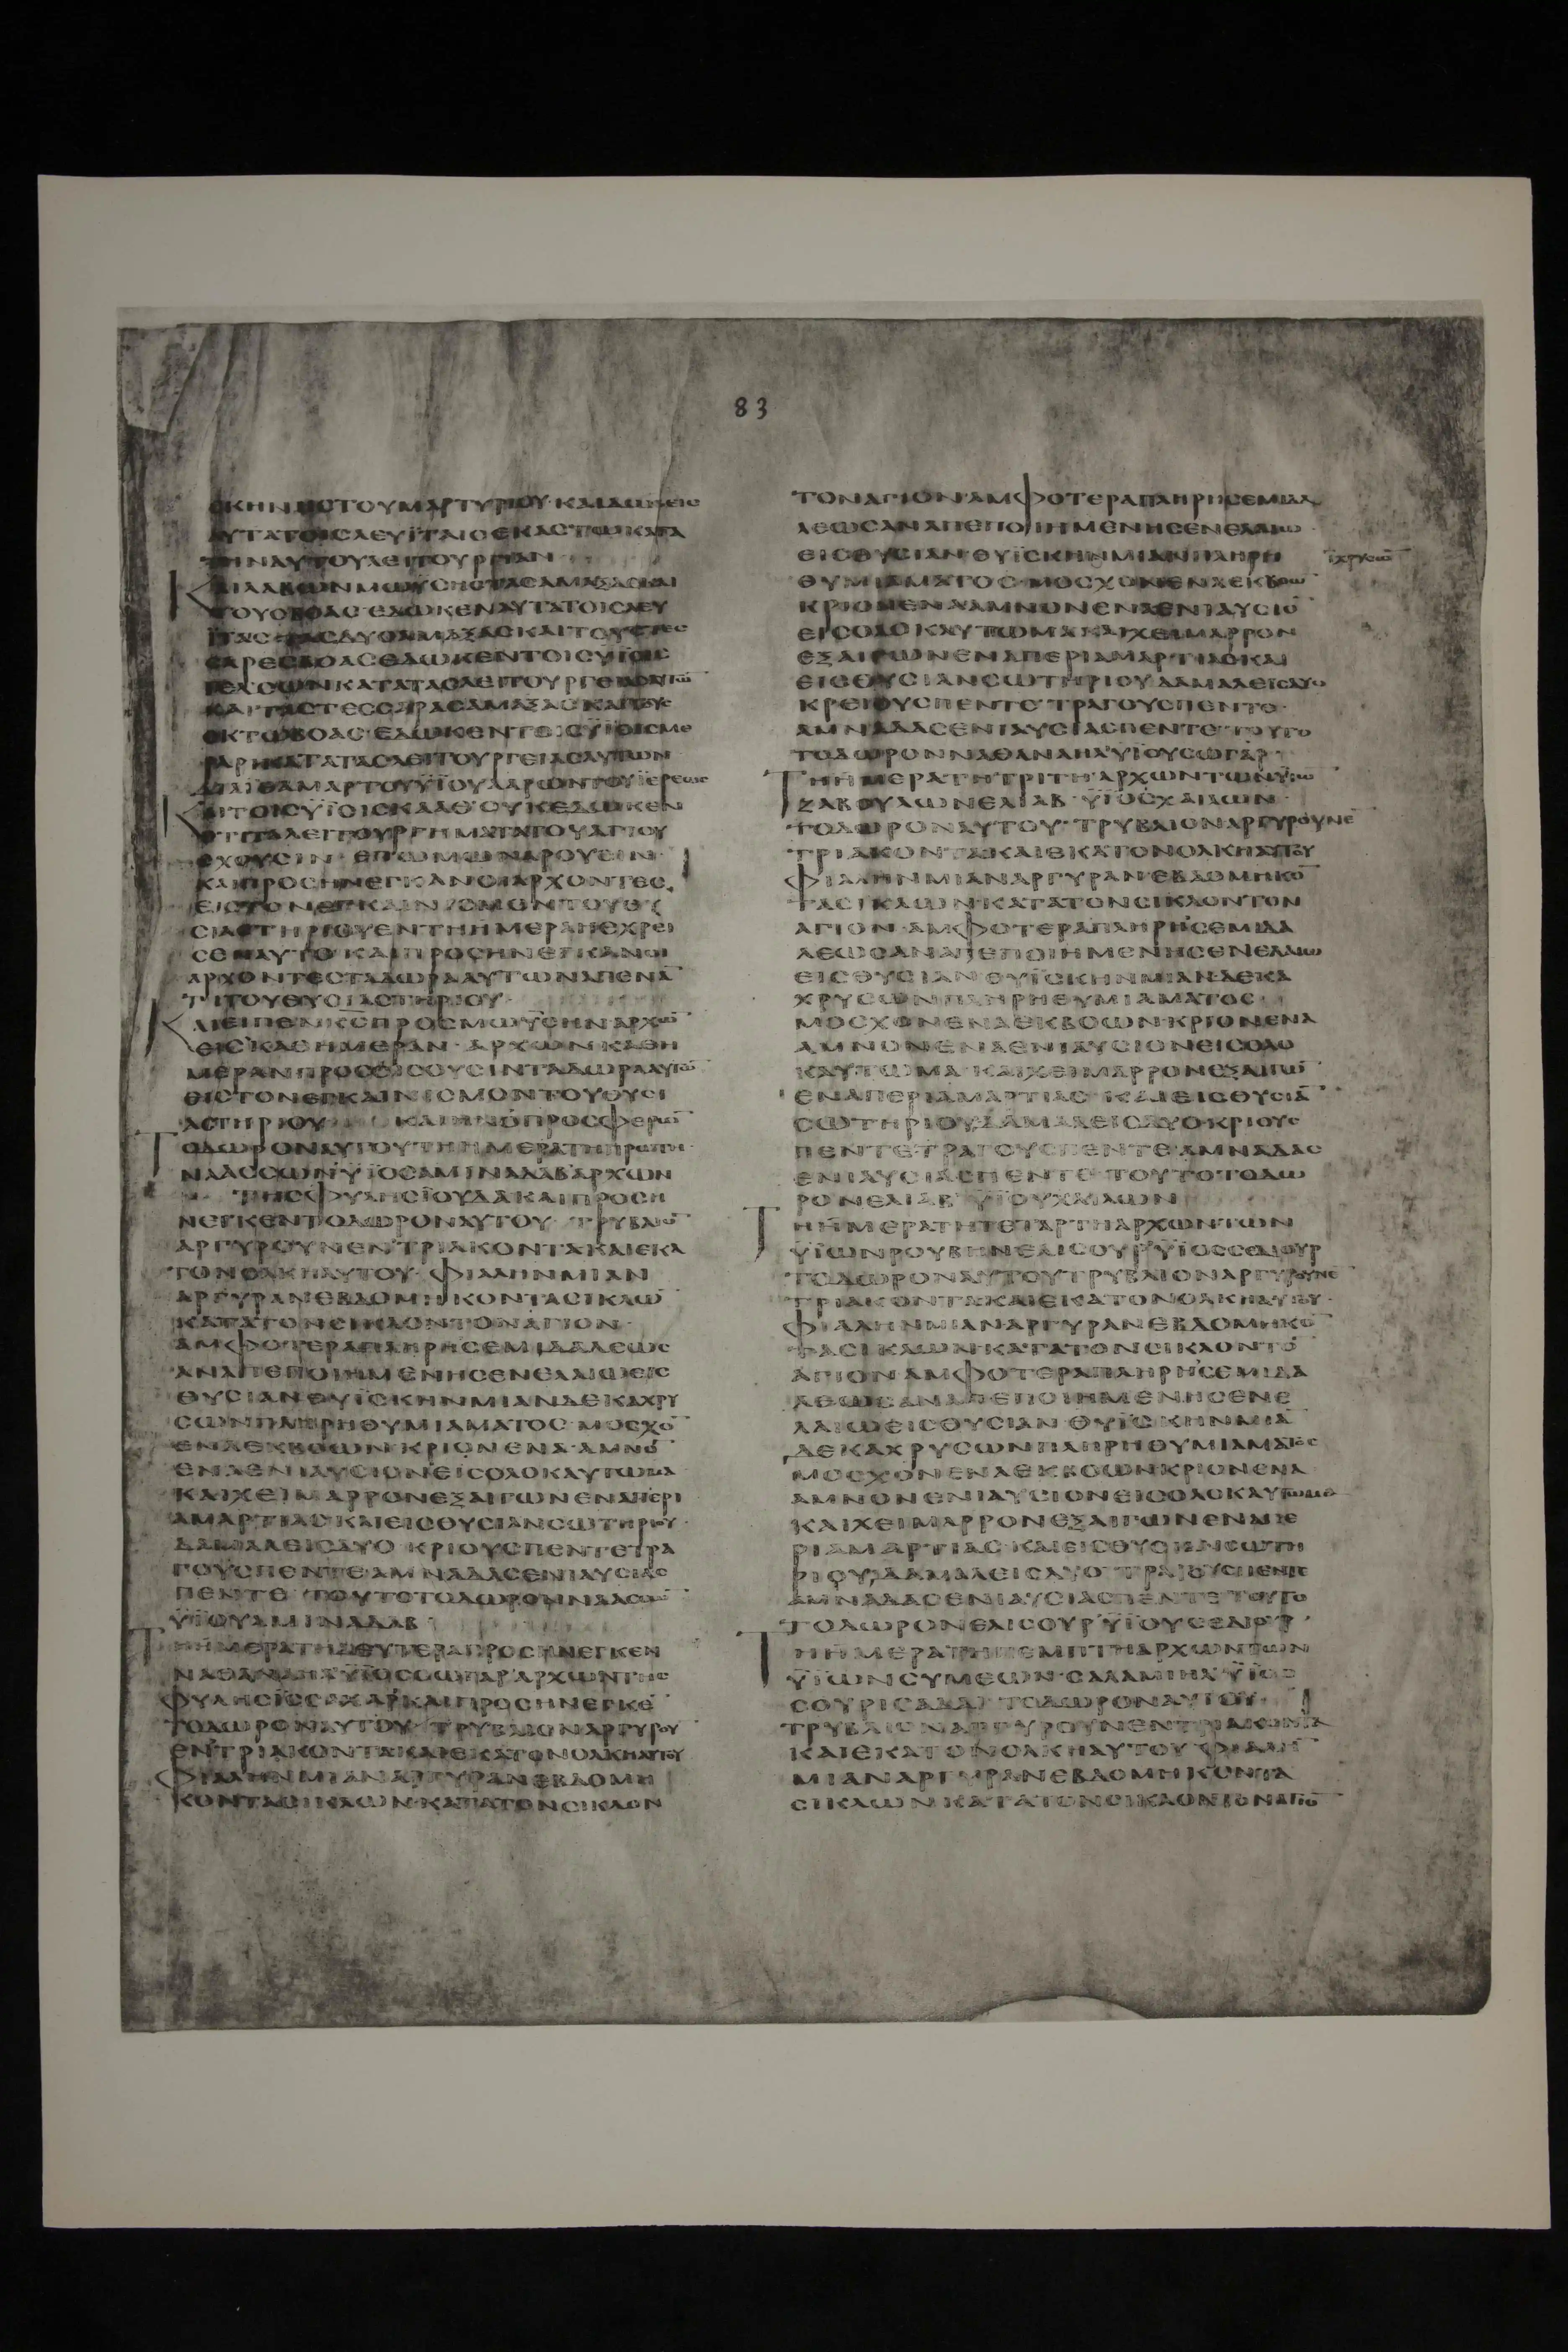 83
ΣΚΗΝΗΣΤΟΥΜΑΡΤΥΡΙΟΥ·ΚΑΙΔΩΣΕΙΣ
ΑΥΤΑΤΟΙΣΛΕΥΪΤΑΙΣΕΚΑΣΤΩΚΑΤΑ
ΤΗΝΑΥΤΟΥΛΕΙΤΟΥΡΓΙΑΝ
ΚΑΙΛΑΒΩΝΜΩΥΣΗΣΤΑΣΑΜΑΞΑΣΚΑΙ
ΤΟΥΣΒΟΑΣ·ΕΔΩΚΕΝΑΥΤΑΤΟΙΣΛΕΥ
ΪΤΑΙΣ ΔΥΟΑΜΑΞΑΣΚΑΙΤΟΥΣΤΕΣ
ΣΑΡΕΣΒΟΑΣΕΔΩΚΕΝΤΟΙΣΥΪΟΙΣ
ΓΕΔΣΩΝΚΑΤΑΤΑΣΛΕΙΤΟΥΡΓΕΙΑΣΑΥΤΩ̅
ΚΑΙΤΑΣΤΕΣΣΑΡΑΣΑΜΑΞΑΣΚΑΙΤΟΥΣ
ΟΚΤΩΒΟΑΣ·ΕΔΩΚΕΝΤΟΙΣΥΪΟΙΣΜΕ
ΡΑΡΗΚΑΤΑΤΑΣΛΕΙΤΟΥΡΓΕΙΑΣΑΥΤΩΝ
ΔΙΑΪΘΑΜΑΡΤΟΥΥΪΟΥΑΑΡΩΝΤΟΥΪΕΡΕΩΣ
ΚΑΙΤΟΙΣΥΪΟΙΣΚΑΑΘ'ΟΥΚΕΔΩΚΕΝ
ΟΤΙΤΑΛΕΙΤΟΥΡΓΗΜΑΤΑΤΟΥΑΓΙΟΥ
ΕΧΟΥΣΙΝ·ΕΠΩΜΩΝΑΡΟΥΣΙΝ·
ΚΑΙΠΡΟΣΗΝΕΓΚΑΝΟΙΑΡΧΟΝΤΕΣ
ΕΙΣΤΟΝΕΓΚΑΙΝΙΣΜΟΝΤΟΥΘΥ
ΣΙΑΣΤΗΡΙΟΥΕΝΤΗΗΜΕΡΑΗΕΧΡΕΙ
ΣΕΝΑΥΤΟ·ΚΑΙΠΡΟΣΗΝΕΓΚΑΝΟΙ
ΑΡΧΟΝΤΕΣΤΑΔΩΡΑΑΥΤΩΝΑΠΕΝΑ̅
ΤΙΤΟΥΘΥΣΙΑΣΤΗΡΙΟΥ·
ΚΑΙΕΙΠΕΝΚ̅Σ̅ΠΡΟΣΜΩΥΣΗΝ·ΑΡΧΩ̅
ΘΕΙΣΚΑΘΗΜΕΡΑΝ·ΑΡΧΩΝΚΑΘΗ
ΜΕΡΑΝΠΡΟΣΟΙΣΟΥΣΙΝΤΑΔΩΡΑΑΥΤΩ̅
ΘΙΣΤΟΝΕΓΚΑΙΝΙΣΜΟΝΤΟΥΘΥΣΙ
ΑΣΤΗΡΙΟΥ ΚΑΙΗΝΟΠΡΟΣΦΕΡΩ̅
ΤΟΔΩΡΟΝΑΥΤΟΥΤΗΗΜΕΡΑΤΗΠΡΩΤΗ·
ΝΑΑΣΣΩΝΥΪΟΣΑΜΙΝΑΔΑΒΑΡΧΩΝ
ΤΗΣΦΥΛΗΣΪΟΥΔΑΚΑΙΠΡΟΣΗ
ΝΕΓΚΕΝΤΟΔΩΡΟΝΑΥΤΟΥ·ΤΡΥΒΛΙΟ̅
ΑΡΓΥΡΟΥΝΕΝΤΡΙΑΚΟΝΤΑΚΑΙΕΚΑ
ΤΟΝΟΛΚΗΑΥΤΟΥ·ΦΙΑΛΗΝΜΙΑΝ
ΑΡΓΥΡΑΝΕΒΔΟΜΗΚΟΝΤΑΣΙΚΛΩ̅
ΚΑΤΑΤΟΝΣΙΚΛΟΝΤΟΝΑΓΙΟΝ·
ΑΜΦΟΤΕΡΑΠΛΗΡΗΣΕΜΙΔΑΛΕΩΣ
ΑΝΑΠΕΠΟΙΗΜΕΝΗΣΕΝΕΛΑΙΩΕΙΣ
ΘΥΣΙΑΝΘΥΪΣΚΗΝΜΙΑΝΔΕΚΑΧΡΥ
ΣΩΝΠΛΗΡΗΘΥΜΙΑΜΑΤΟΣ·ΜΟΣΧΟ̅
ΕΝΑΕΚΒΟΩΝ·ΚΡΙΟΝΕΝΑ·ΑΜΝΟ̅
ΕΝΑΕΝΙΑΥΣΙΟΝΕΙΣΟΛΟΚΑΥΤΩΜΑ·
ΚΑΙΧΕΙΜΑΡΡΟΝΕΞΑΙΓΩΝΕΝΑΠΕΡΙ
ΑΜΑΡΤΙΑΣ·ΚΑΙΕΙΣΘΥΣΙΑΝΣΩΤΗΡΙΟΥ·
ΔΑΜΑΛΕΙΣΔΥΟ ΚΡΙΟΥΣΠΕΝΤΕΤΡΑ
ΓΟΥΣΠΕΝΤΕΑΜΝΑΔΑΣΕΝΙΑΥΣΙΑΣ
ΠΕΝΤΕ ΤΟΥΤΟΤΟΔΩΡΟΝΝΑΑΣΣΩ̅
ΥΪΟΥΑΜΙΝΑΔΑΒ·
ΤΗΗΜΕΡΑΤΗΔΕΥΤΕΡΑΠΡΟΣΗΝΕΓΚΕΝ
ΝΑΘΑΝΑΗΛΥΪΟΣΣΩΓΑΡ·ΑΡΧΩΝΤΗΣ
ΦΥΛΗΣΪΣΣΑΧΑΡΚΑΙΠΡΟΣΗΝΕΓΚΕ̅
ΤΟΔΩΡΟΝΑΥΤΟΥ·ΤΡΥΒΛΙΟΝΑΡΓΥΡΟΥ
ΕΝΤΡΙΑΚΟΝΤΑΚΑΙΕΚΑΤΟΝΟΛΚΗΑΥΤΟΥ
ΦΙΑΛΗΝΜΙΑΝΑΡΓΥΡΑΝΕΒΔΟΜΗ
ΚΟΝΤΑΣΙΚΛΩΝ·ΚΑΤΑΤΟΝΣΙΚΛΟΝ
ΤΟΝΑΓΙΟΝ·ΑΜΦΟΤΕΡΑΠΛΗΡΗΣΕΜΙΔΑ
ΛΕΩΣΑΝΑΠΕΠΟΙΗΜΕΝΗΣΕΝΕΛΑΙΩ·
ΕΙΣΘΥΣΙΑΝ·ΘΥΪΣΚΗΝΜΙΑΝΠΛΗΡΗ
Ϊ̅ΧΡΥΣΩ̅
ΘΥΜΙΑΜΑΤΟΣ·ΜΟΣΧΟΝΕΝΑΕΚΒΟΩ̅
ΚΡΙΟΝΕΝΑΑΜΝΟΝΕΝΑΕΝΙΑΥΣΙΟ̅
ΕΙΣΟΛΟΚΑΥΤΩΜΑΚΑΙΧΕΙΜΑΡΡΟΝ
ΕΞΑΙΓΩΝΕΝΑΠΕΡΙΑΜΑΡΤΙΑΣΚΑΙ
ΕΙΣΘΥΣΙΑΝΣΩΤΗΡΙΟΥΔΑΜΑΛΕΙΣΔΥΟ
ΚΡΕΙΟΥΣΠΕΝΤΕ·ΤΡΑΓΟΥΣΠΕΝΤΕ·
ΑΜΝΑΔΑΣΕΝΙΑΥΣΙΑΣΠΕΝΤΕ·ΤΟΥΤΟ
ΤΟΔΩΡΟΝΝΑΘΑΝΑΗΛΥΪΟΥΣΩΓΑΡ·
ΤΗΗΜΕΡΑΤΗΤΡΙΤΗΑΡΧΩΝΤΩΝΥΪΩ̅
ΖΑΒΟΥΛΩΝΕΛΙΑΒ·ΥΪΟΣΧΑΙΛΩΝ·
ΤΟΔΩΡΟΝΑΥΤΟΥ·ΤΡΥΒΛΙΟΝΑΡΓΥΡΟΥΝΕ̅
ΤΡΙΑΚΟΝΤΑΚΑΙΕΚΑΤΟΝΟΛΚΗΑΥΤΟΥ
ΦΙΑΛΗΝΜΙΑΝΑΡΓΥΡΑΝΕΒΔΟΜΗΚΟ̅
ΤΑΣΙΚΛΩΝ·ΚΑΤΑΤΟΝΣΙΚΛΟΝΤΟΝ
ΑΓΙΟΝ·ΑΜΦΟΤΕΡΑΠΛΗΡΗΣΕΜΙΔΑ
ΛΕΩΣΑΝΑΠΕΠΟΙΗΜΕΝΗΣΕΝΕΛΑΙΩ
ΕΙΣΘΥΣΙΑΝ·ΘΥΪΣΚΗΝΜΙΑΝΔΕΚΑ
ΧΡΥΣΩΝΠΛΗΡΗΘΥΜΙΑΜΑΤΟΣ·
ΜΟΣΧΟΝΕΝΑΕΚΒΟΩΝ·ΚΡΙΟΝΕΝΑ
ΑΜΝΟΝΕΝΑΕΝΙΑΥΣΙΟΝΕΙΣΟΛΟ
ΚΑΥΤΩΜΑ·ΚΑΙΧΕΙΜΑΡΡΟΝΕΞΑΙΓΩ̅
ΕΝΑΠΕΡΙΑΜΑΡΤΙΑΣ·ΚΑΙΕΙΣΘΥΣΙΑ̅
ΣΩΤΗΡΙΟΥΔΑΜΑΛΕΙΣΔΥΟ·ΚΡΙΟΥΣ
ΠΕΝΤΕ·ΤΡΑΓΟΥΣΠΕΝΤΕΑΜΝΑΔΑΣ
ΕΝΙΑΥΣΙΑΣΠΕΝΤΕ·ΤΟΥΤΟΤΟΔΩ
ΡΟΝΕΛΙΑΒ·ΥΪΟΥΧΑΙΛΩΝ
ΤΗΗΜΕΡΑΤΗΤΕΤΑΡΤΗΑΡΧΩΝΤΩΝ
ΥΪΩΝΡΟΥΒΗΝΕΛΙΣΟΥΡΥΪΟΣΣΕΔΙΟΥΡ
ΤΟΔΩΡΟΝΑΥΤΟΥΤΡΥΒΛΙΟΝΑΡΓΥΡΟΥΝΕ̅
ΤΡΙΑΚΟΝΤΑΚΑΙΕΚΑΤΟΝΟΛΚΗΑΥΤΟΥ·
ΦΙΑΛΗΝΜΙΑΝΑΡΓΥΡΑΝΕΒΔΟΜΗΚΟ̅
ΤΑΣΙΚΛΩΝ·ΚΑΤΑΤΟΝΣΙΚΛΟΝΤΟ̅
ΑΓΙΟΝΑΜΦΟΤΕΡΑΠΛΗΡΗΣΕΜΙΔΑ
ΛΕΩΣΑΝΑΠΕΠΟΙΗΜΕΝΗΣΕΝΕ
ΛΑΙΩΕΙΣΘΥΣΙΑΝ·ΘΥΪΣΚΗΝΜΙΑ̅
ΔΕΚΑΧΡΥΣΩΝΠΛΗΡΗΘΥΜΙΑΜΑΤΟΣ
ΜΟΣΧΟΝΕΝΑΕΚΒΟΩΝΚΡΙΟΝΕΝΑ
ΑΜΝΟΝΕΝΙΑΥΣΙΟΝΕΙΣΟΛΟΚΑΥΤΩΜΑ
ΚΑΙΧΕΙΜΑΡΡΟΝΕΞΑΙΓΩΝΕΝΑΠΕ
ΡΙΑΜΑΡΤΙΑΣ·ΚΑΙΕΙΣΘΥΣΙΑΝΣΩΤΗ
ΡΙΟΥΔΑΜΑΛΕΙΣΔΥΟ·ΤΡΑΓΟΥΣΠΕΝΤΕ
ΑΜΝΑΔΑΣΕΝΙΑΥΣΙΑΣΠΕΝΤΕΤΟΥΤΟ
ΤΟΔΩΡΟΝΕΛΙΣΟΥΡΥΪΟΥΣΕΔΙΟΥΡ·
ΤΗΗΜΕΡΑΤΗΠΕΜΠΤΗΑΡΧΩΝΤΩΝ
ΥΪΩΝΣΥΜΕΩΝ·ΣΑΛΑΜΙΗΛΥΪΟΣ
ΣΟΥΡΙΣΑΔΑΙ·ΤΟΔΩΡΟΝΑΥΤΟΥ·
ΤΡΥΒΛΙΟΝΑΡΓΥΡΟΥΝΕΝΤΡΙΑΚΟΝΤΑ
ΚΑΙΕΚΑΤΟΝΟΛΚΗΑΥΤΟΥ·ΦΙΑΛΗ̅
ΜΙΑΝΑΡΓΥΡΑΝΕΒΔΟΜΗΚΟΝΤΑ
ΣΙΚΛΩΝΚΑΤΑΤΟΝΣΙΚΛΟΝΤΟΝΑΓΙΟ̅